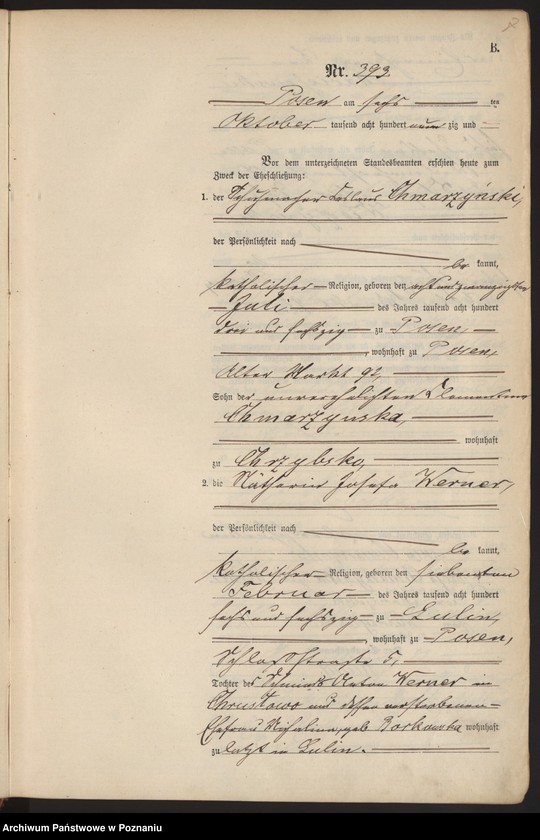 B.
Nr. 393.
Posen am sechs ten
Oktober tausend acht hundert neun zig und
Vor dem unterzeichneten Standesbeamten erschien heute zum
Zweck der Eheschließung:
1. der Schuhmacher Chmarzyński,
der Persönlichkeit nach
be kannt,
katholischer Religion, geboren den acht und zwanzigsten
Juli des Jahres tausend acht hundert
drei und sechszig zu Posen,
, wohnhaft zu Posen,
Alter Markt 92,
Sohn der unverehelichten Clementine
Chmarzynska,
wohnhaft
zu Chrzybsko,
2. die Nätherin Josefa Werner,
der Persönlichkeit nach
be kannt,
katholischer Religion, geboren den siebenten
Februar des Jahres tausend acht hundert
sechs und sechszig zu Lulin,
, wohnhaft zu Posen,
Schloßstraße 5,
Tochter des Schmieds Anton Werner in
Chrustowo und dessen verstorbenen
Ehefrau Michalina, geb. Borkowska wohnhaft
zu letzt in Lulin.
Archiwum Państwowe w Poznaniu